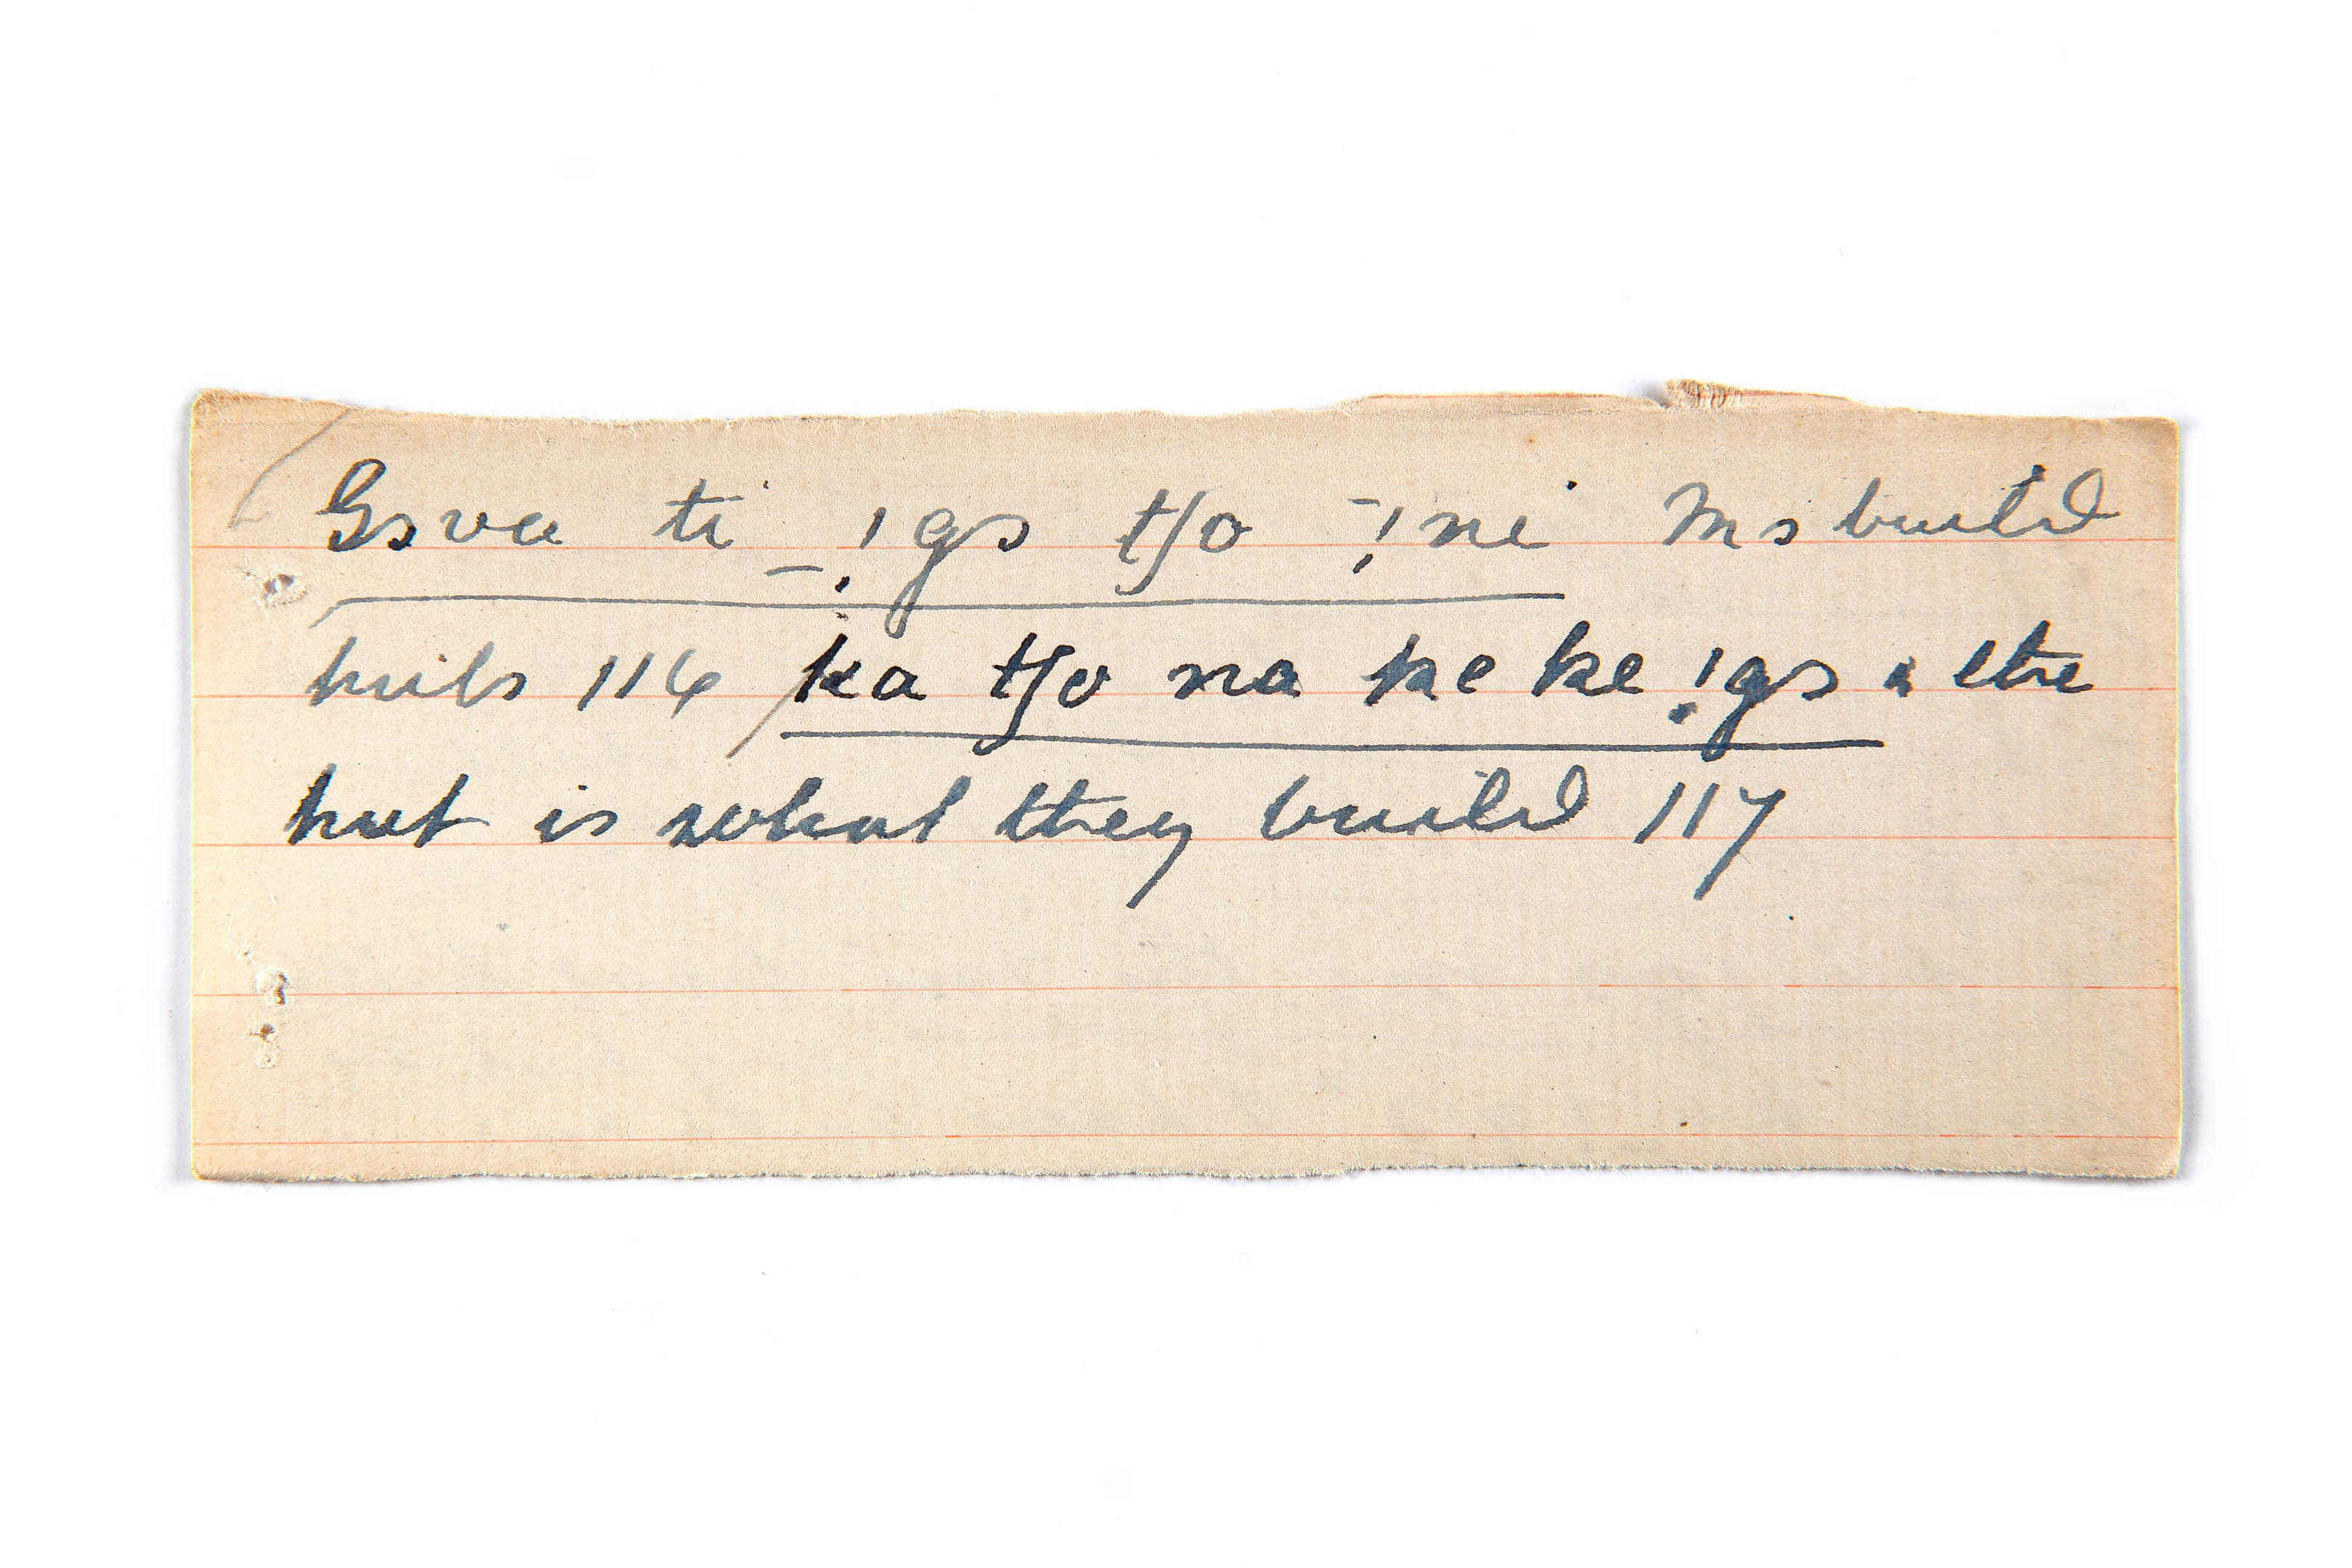 Gova ti !go tʃo !nei Ms build
huts 116 ka tʃo na ke ke !go the
hut is what they build 117